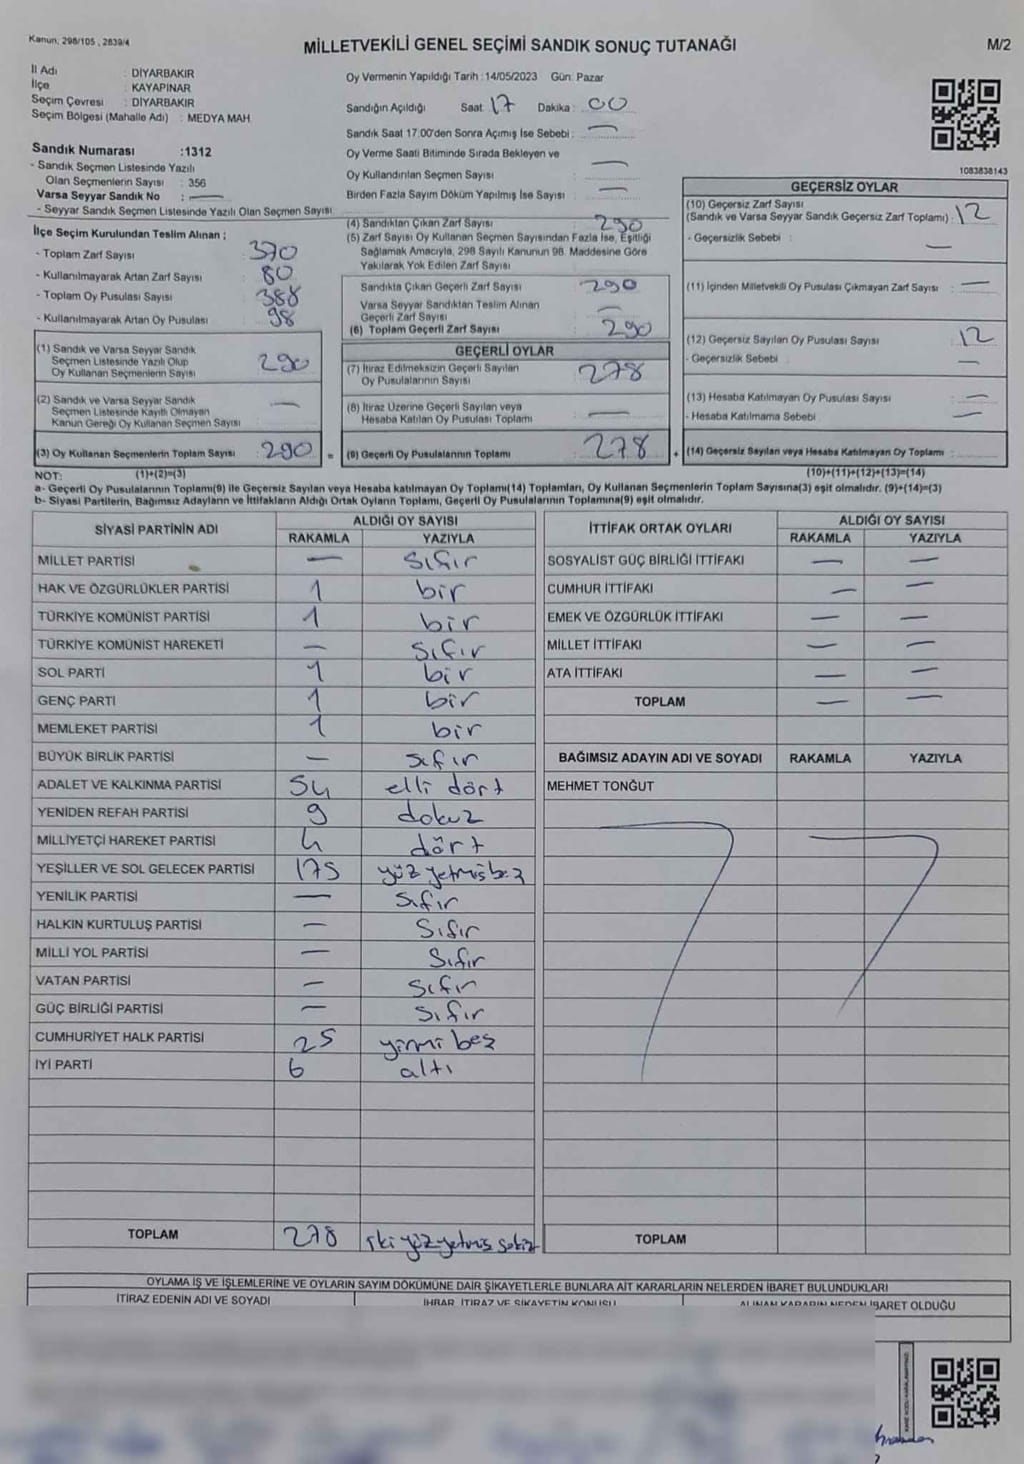 Kanun, 298/105 , 2839/4
MİLLETVEKİLİ GENEL SEÇİMİ SANDIK SONUÇ TUTANAĞI
M/2
İl Adı : DİYARBAKIR
İlçe : KAYAPINAR
Seçim Çevresi : DİYARBAKIR
Seçim Bölgesi (Mahalle Adı) : MEDYA MAH.
Sandık Numarası :1312
- Sandık Seçmen Listesinde Yazılı
Olan Seçmenlerin Sayısı : 356
Varsa Seyyar Sandık No : —
- Seyyar Sandık Seçmen Listesinde Yazılı Olan Seçmen Sayısı
Oy Vermenin Yapıldığı Tarih :14/05/2023 Gün: Pazar
Sandığın Açıldığı Saat 17 Dakika : 00
Sandık Saat 17:00'den Sonra Açımış İse Sebebi : —
Oy Verme Saati Bitiminde Sırada Bekleyen ve
Oy Kullandırılan Seçmen Sayısı : —
Birden Fazla Sayım Döküm Yapılmış İse Sayısı : —
1083838143
İlçe Seçim Kurulundan Teslim Alınan ;
- Toplam Zarf Sayısı : 370
- Kullanılmayarak Artan Zarf Sayısı : 80
- Toplam Oy Pusulası Sayısı : 388
- Kullanılmayarak Artan Oy Pusulası : 98
(1) Sandık ve Varsa Seyyar Sandık
Seçmen Listesinde Yazılı Olup
Oy Kullanan Seçmenlerin Sayısı : 290
(2) Sandık ve Varsa Seyyar Sandık
Seçmen Listesinde Kayıtlı Olmayan
Kanun Gereği Oy Kullanan Seçmen Sayısı : —
(3) Oy Kullanan Seçmenlerin Toplam Sayısı : 290
(4) Sandıktan Çıkan Zarf Sayısı : 290
(5) Zarf Sayısı Oy Kullanan Seçmen Sayısından Fazla İse, Eşitliği
Sağlamak Amacıyla, 298 Sayılı Kanunun 98. Maddesine Göre
Yakılarak Yok Edilen Zarf Sayısı
Sandıkta Çıkan Geçerli Zarf Sayısı : 290
Varsa Seyyar Sandıktan Teslim Alınan
Geçerli Zarf Sayısı : —
(6) Toplam Geçerli Zarf Sayısı : 290
GEÇERLİ OYLAR
(7) İtiraz Edilmeksizin Geçerli Sayılan
Oy Pusulalarının Sayısı : 278
(8) İtiraz Üzerine Geçerli Sayılan veya
Hesaba Katılan Oy Pusulası Toplamı : —
= (9) Geçerli Oy Pusulalarının Toplamı : 278
GEÇERSİZ OYLAR
(10) Geçersiz Zarf Sayısı
(Sandık ve Varsa Seyyar Sandık Geçersiz Zarf Toplamı) : 12
- Geçersizlik Sebebi : —
(11) İçinden Milletvekili Oy Pusulası Çıkmayan Zarf Sayısı : —
(12) Geçersiz Sayılan Oy Pusulası Sayısı : 12
- Geçersizlik Sebebi : —
(13) Hesaba Katılmayan Oy Pusulası Sayısı : —
- Hesaba Katılmama Sebebi : —
+ (14) Geçersiz Sayılan veya Hesaba Katılmayan Oy Toplamı :
NOT: (1)+(2)=(3) (10)+(11)+(12)+(13)=(14)
a- Geçerli Oy Pusulalarının Toplamı(9) ile Geçersiz Sayılan veya Hesaba katılmayan Oy Toplamı(14) Toplamları, Oy Kullanan Seçmenlerin Toplam Sayısına(3) eşit olmalıdır. (9)+(14)=(3)
b- Siyasi Partilerin, Bağımsız Adayların ve İttifakların Aldığı Ortak Oyların Toplamı, Geçerli Oy Pusulalarının Toplamına(9) eşit olmalıdır.
SİYASİ PARTİNİN ADI ALDIĞI OY SAYISI
RAKAMLA YAZIYLA
MİLLET PARTİSİ — sıfır
HAK VE ÖZGÜRLÜKLER PARTİSİ 1 bir
TÜRKİYE KOMÜNİST PARTİSİ 1 bir
TÜRKİYE KOMÜNİST HAREKETİ — sıfır
SOL PARTİ 1 bir
GENÇ PARTİ 1 bir
MEMLEKET PARTİSİ 1 bir
BÜYÜK BİRLİK PARTİSİ — sıfır
ADALET VE KALKINMA PARTİSİ 54 elli dört
YENİDEN REFAH PARTİSİ 9 dokuz
MİLLİYETÇİ HAREKET PARTİSİ 4 dört
YEŞİLLER VE SOL GELECEK PARTİSİ 175 yüz yetmiş beş
YENİLİK PARTİSİ — sıfır
HALKIN KURTULUŞ PARTİSİ — sıfır
MİLLİ YOL PARTİSİ — sıfır
VATAN PARTİSİ — sıfır
GÜÇ BİRLİĞİ PARTİSİ — sıfır
CUMHURİYET HALK PARTİSİ 25 yirmi beş
İYİ PARTİ 6 altı
TOPLAM 278 iki yüz yetmiş sekiz
İTTİFAK ORTAK OYLARI ALDIĞI OY SAYISI
RAKAMLA YAZIYLA
SOSYALİST GÜÇ BİRLİĞİ İTTİFAKI — —
CUMHUR İTTİFAKI — —
EMEK VE ÖZGÜRLÜK İTTİFAKI — —
MİLLET İTTİFAKI — —
ATA İTTİFAKI — —
TOPLAM — —
BAĞIMSIZ ADAYIN ADI VE SOYADI RAKAMLA YAZIYLA
MEHMET TONĞUT
TOPLAM
OYLAMA İŞ VE İŞLEMLERİNE VE OYLARIN SAYIM DÖKÜMÜNE DAİR ŞİKAYETLERLE BUNLARA AİT KARARLARIN NELERDEN İBARET BULUNDUKLARI
İTİRAZ EDENİN ADI VE SOYADI
İHBAR, İTİRAZ VE ŞİKAYETİN KONUSU
ALINAN KARARIN NEDEN İBARET OLDUĞU